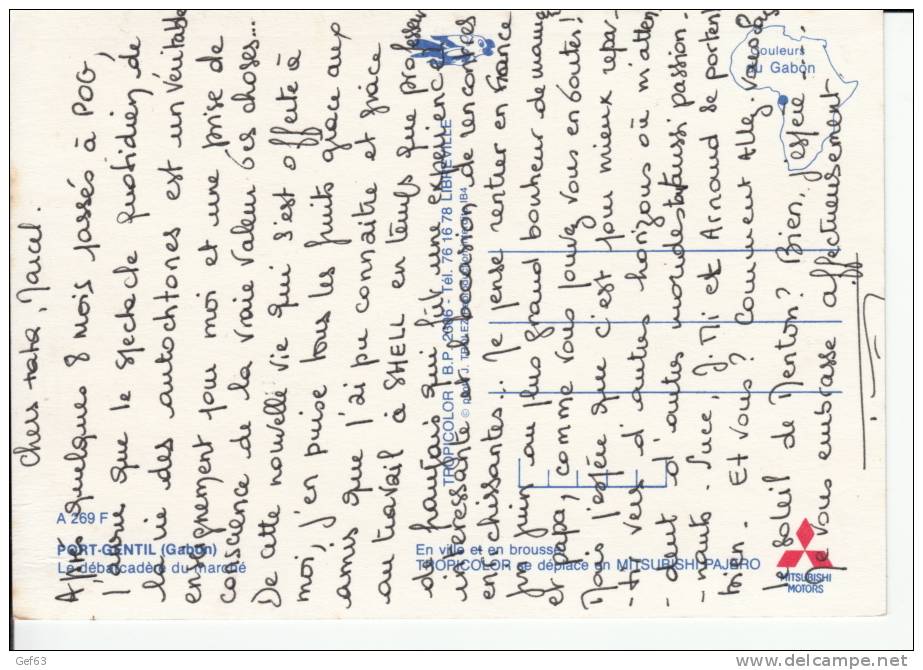 Chers tata, Marcel.
Après quelques 8 mois passés à POG,
j'avoue que le spectacle quotidien, de
la vie des autochtones est un véritable
enseignement pour moi et une prise de
conscience de la vraie valeur des choses...
De cette nouvelle vie qui s'est offerte à
moi, j'en puise tous les fruits grâce aux
amis que j'ai pu connaître et grâce
au travail à SHELL en temps que professeur
de français qui fut une expérience
intéressante et l'occasion de rencontres
enrichissantes... Je pense rentrer en France
fin juin au plus grand bonheur de maman
et papa, comme vous pouvez vous en douter!
Mais j'espère que c'est pour mieux repar-
-tir vers d'autres horizons où m'atten-
-dent d'autres mondes aussi passion-
-nants. Luce, J.Mi et Arnaud se portent
bien. Et vous? Comment allez-vous sous
le soleil de Menton? Bien, j'espère....
Je vous embrasse affectueusement
A 269 F
PORT-GENTIL (Gabon)
Le débarcadère du marché
En ville et en brousse
TROPICOLOR se déplace en MITSUBISHI PAJERO
TROPICOLOR - B.P. 2006 - Tél. 76 16 78 LIBREVILLE
Couleurs
du Gabon
MITSUBISHI
MOTORS
Gef63
delcampe.net